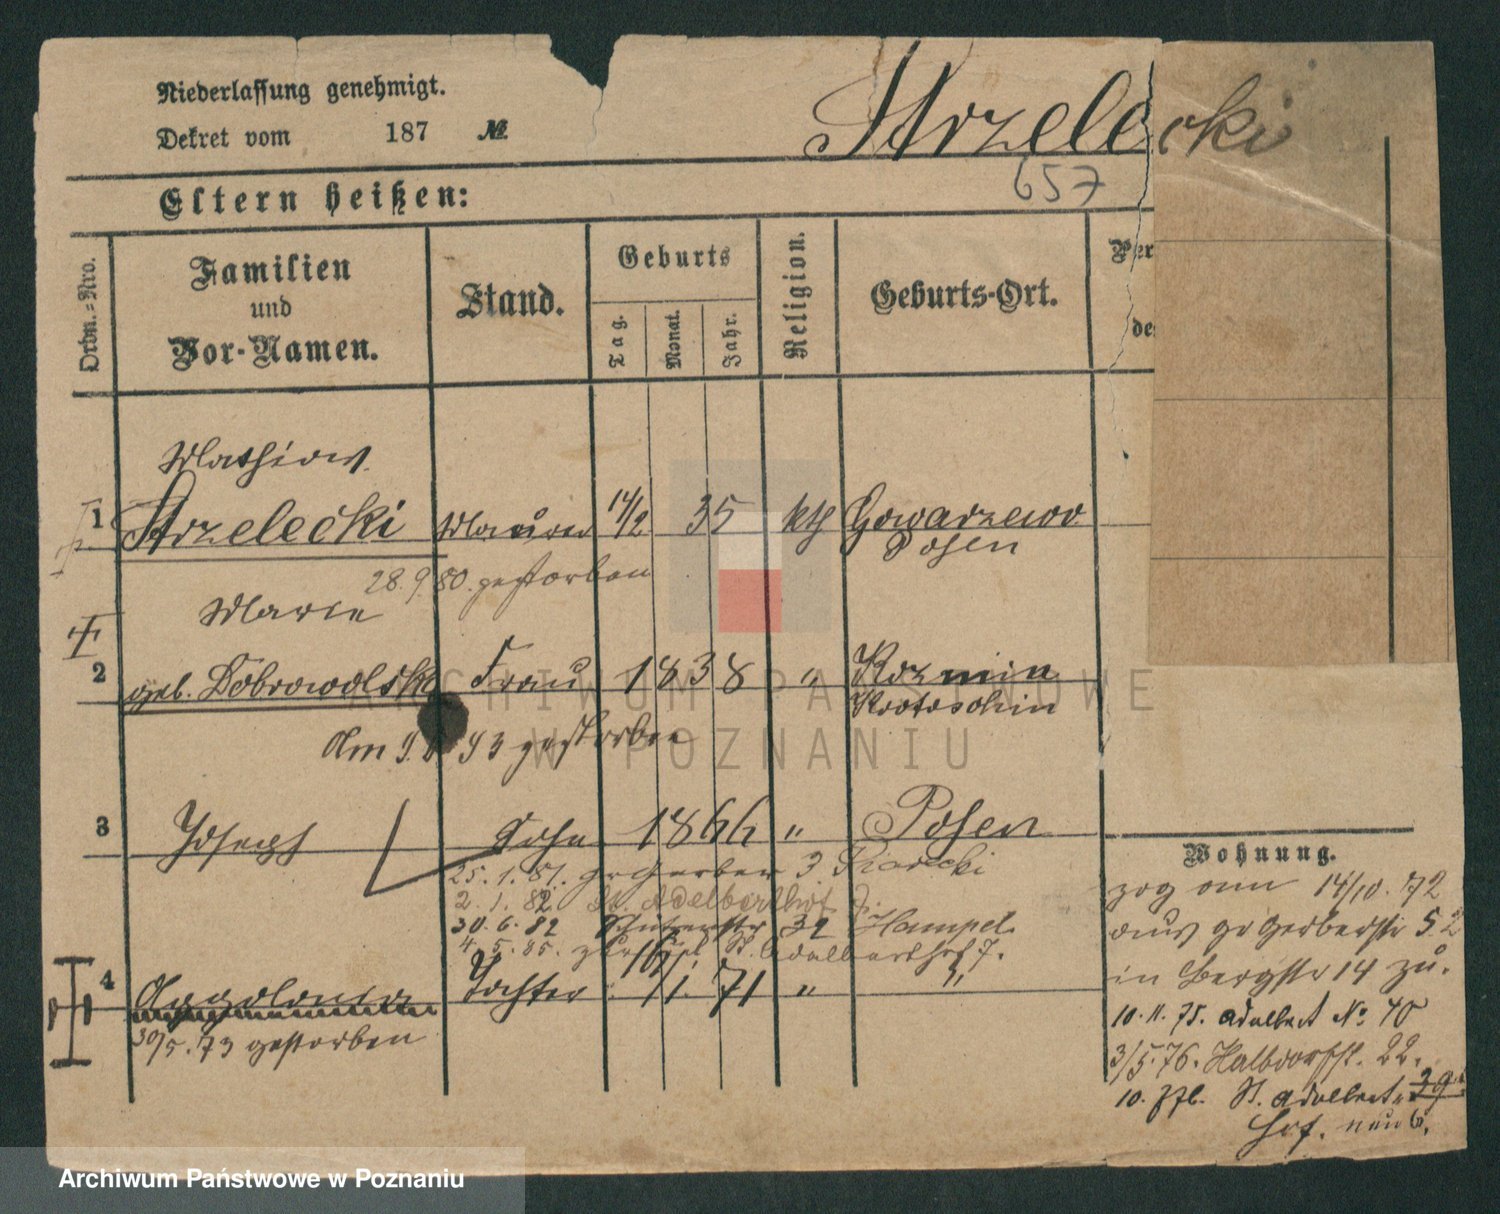 Niederlassung genehmigt.
Dekret vom 187 №
Strzelecki
657
Eltern heißen:
Ordn.-Nro.
Familien
und
Vor-Namen.
Stand.
Geburts
Tag.
Monat.
Jahr.
Religion.
Geburts-Ort.
Per
de
Mathias
1 Strzelecki Maurer 14/2 35 kth Gowarzewo
Posen
28.9.80. gestorben
Marie
2 geb. Dobrowolska Frau 1838 " Kozmin
Krotoschin
Am 93 gestorben
3 Joseph Sohn 1866 " Posen
25.1.81. gr Gerber 3
2.1.82 St. Adelberthof 7.
30.6.82 Schützenstr 32 Hampel.
4.5.85. St. Adalberthof 7.
4 Tochter 16/1. 71 " "
30/5.73 gestorben
Wohnung.
zog am 14/10.72
aus gr Gerberstr 52
in Bergstr 14 zu.
10.11.75. Adalbert No 40
3/5.76. Halbdorfst. 22.
10. 77b. St. Adalbert 39
Hof. neu 6.
ARCHIWUM PAŃSTWOWE
W POZNANIU
Archiwum Państwowe w Poznaniu